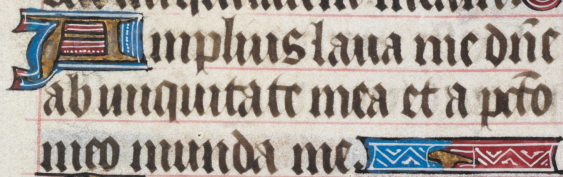 Amplius laua me dñe
ab iniquitate mea et a pcto
meo munda me.